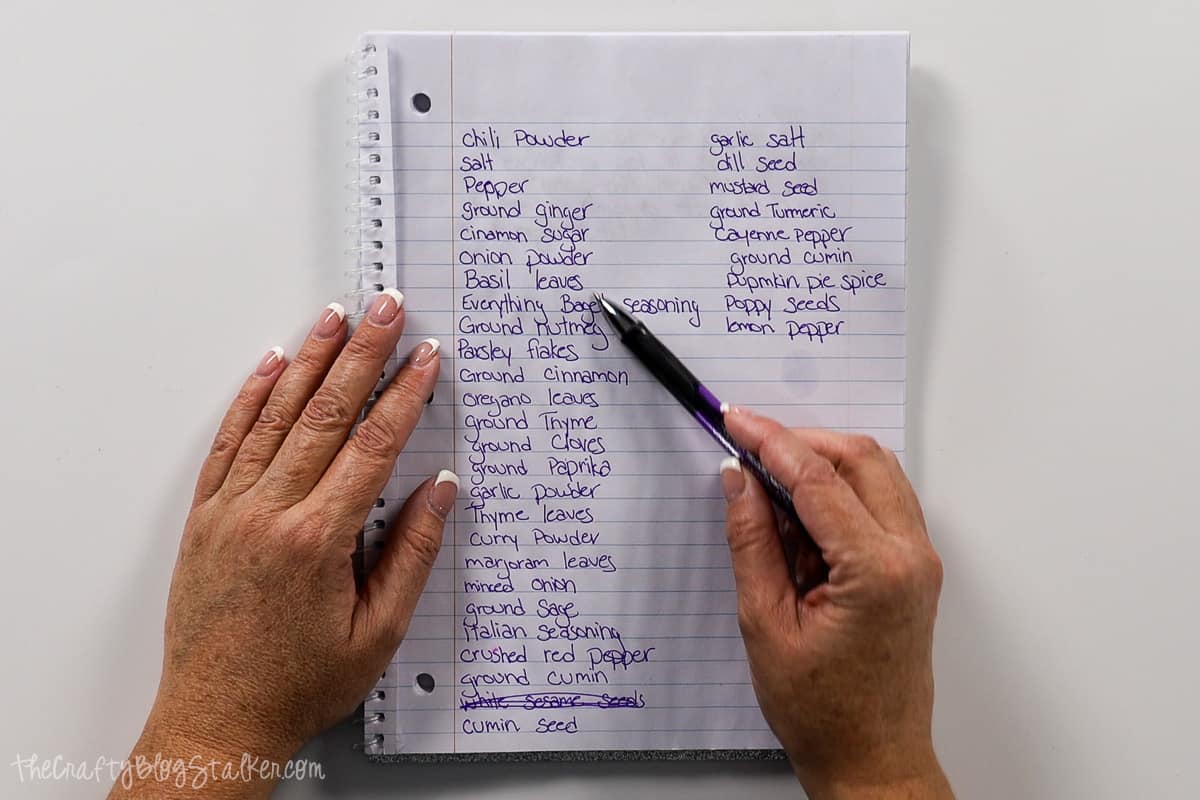 chili Powder
salt
Pepper
ground ginger
cinamon sugar
onion powder
Basil leaves
Everything Bagel seasoning
Ground nutmeg
Parsley flakes
Ground cinnamon
oregano leaves
ground Thyme
ground Cloves
ground Paprika
garlic powder
Thyme leaves
curry Powder
marjoram leaves
minced onion
ground sage
italian seasoning
crushed red pepper
ground cumin
white sesame seeds
cumin seed
garlic salt
dill seed
mustard seed
ground Turmeric
Cayenne pepper
ground cumin
Pupmkin pie spice
Poppy seeds
lemon pepper
theCraftyBlogStalker.com